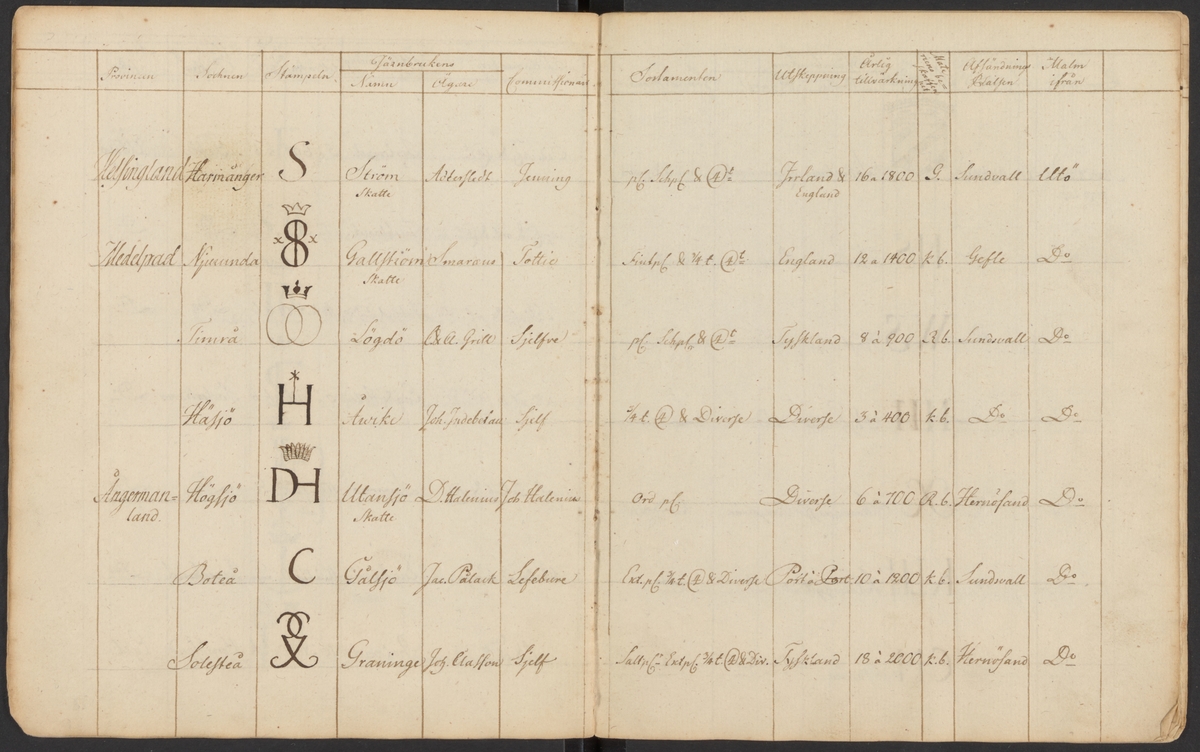 Provinsen Socknen Stämpeln Järnbrukens Namn Ägare Commissionair Sortamenten Utskeppning Årlig tillvärkning Afsändnings Platsen Malm ifrån
Helsingland Harmånger S Ström Skatte Adterstedt Jenning pf. Schpf. & ④ t Irrland & England 16 a 1800 G. Sundvall Utö
Medelpad Njurunda Gallström Skatte Smaraus Tottie & 3/4 t. ④ t England 12 a 1400 k. b. Gefle Do
Timrå Lögdö C & A. Grill Sjelfve pf. Schpf. & ④ t Tyskland 8 à 900 R. b. Sundswall Do
Håsjö H Åwike Joh. Indebetau Sjelf 3/4 t. ④ & Diverse Diverse 3 à 400 k. b. Do Do
Ångerman=
land. Högsjö DH Utansjö Skatte D. Halenius Joh Halenius Ord pf. Diverse 6 à 700 R. b. Hernösand Do
Boteå C Gålsjö Jac. Pålack Lefebure Ext. pf. 3/4 t. ④ & Diverse Port à Port 10 à 1200 k. b. Sundwall Do
Solesteå Graninge Joh. Classon Sjelf Extpf. 3/4 t ④ & Div. Tyskland 18 à 2000 k. b. Hernösand Do